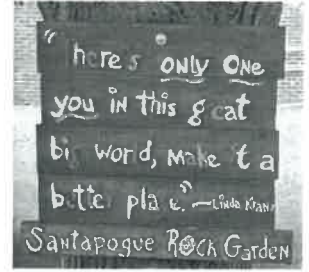 "here's only one
you in this g eat
bi word, make 't a
bette pla e." ~Linda Kranz
Santapogue Rock Garden